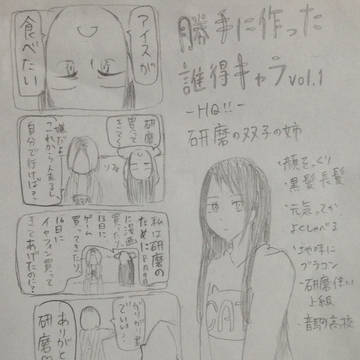 勝手に作った
誰得キャラvol.1
-HQ!!-
研磨の双子の姉
・顔そっくり
・黒髪長髪
・元気ってか
よくしゃべる
・地味に
ブラコン
-研磨使い
上級
・音駒高校
アイスが
食べたい
研磨
買って
きて〜
嫌だよ
これから
自分で行けば?
私は研磨の
ために
に漫画
買ったり
15日に
ゲーム
買ってきたり
16日に
買って
きてあげたのに?
でいい…
ありがと
研磨